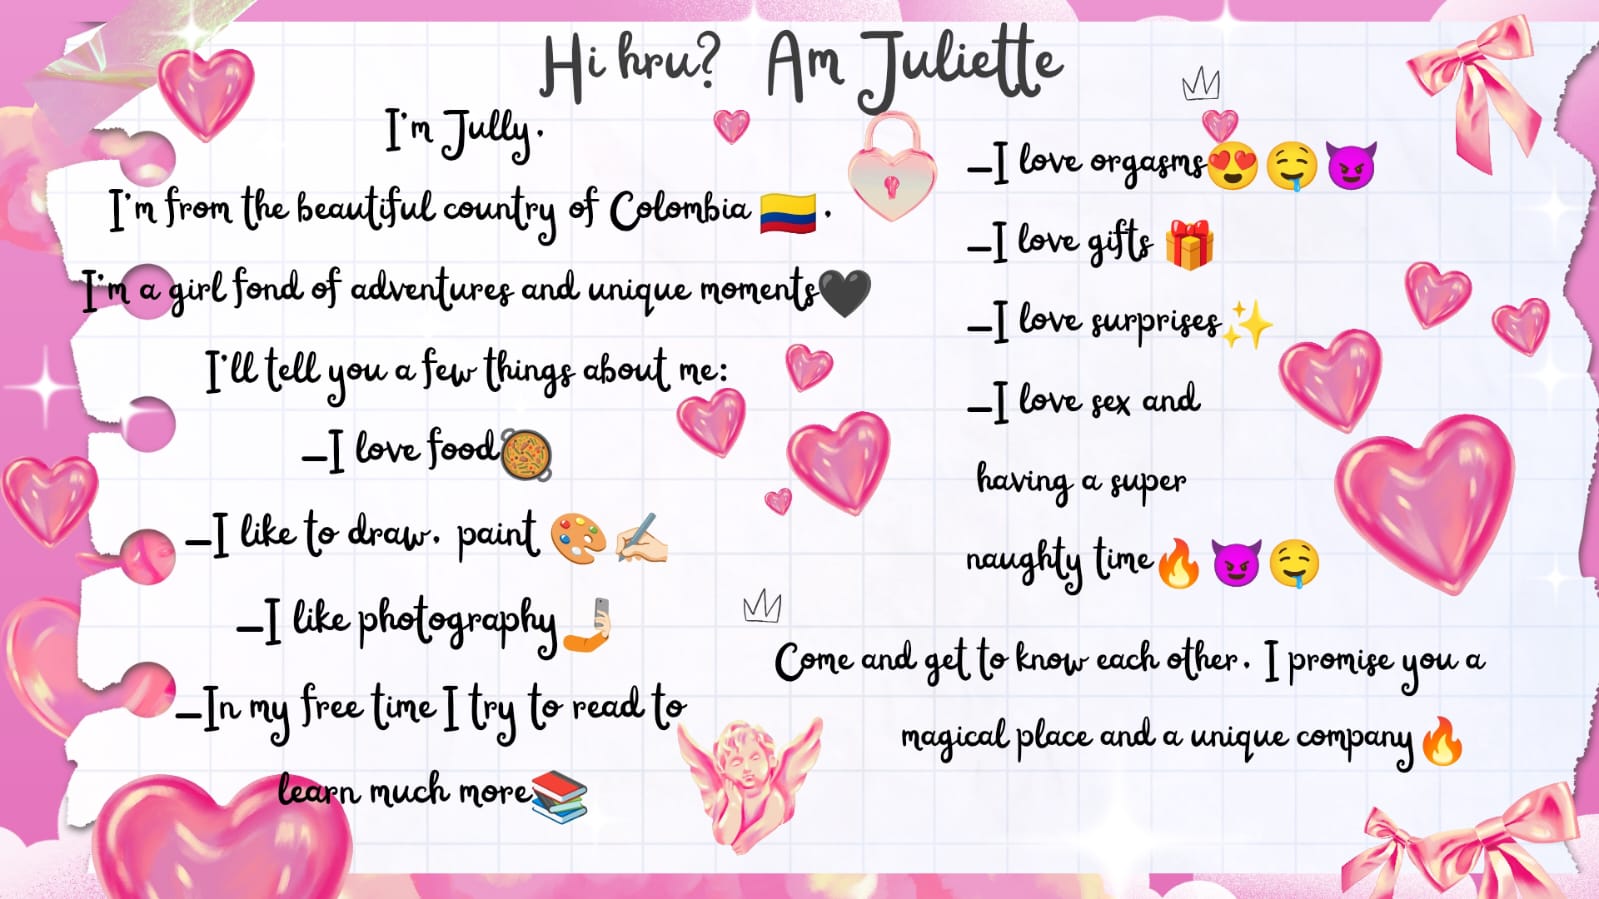 Hi hru? Am Juliette
I'm Jully.
I'm from the beautiful country of Colombia 🇨🇴.
I'm a girl fond of adventures and unique moments🖤
I'll tell you a few things about me:
-I love food🥘
-I like to draw. paint 🎨✍🏻
-I like photography🤳
-In my free time I try to read to
learn much more📚
-I love orgasms😍🤤😈
-I love gifts 🎁
-I love surprises✨
-I love sex and
having a super
naughty time🔥😈🤤
Come and get to know each other. I promise you a
magical place and a unique company🔥